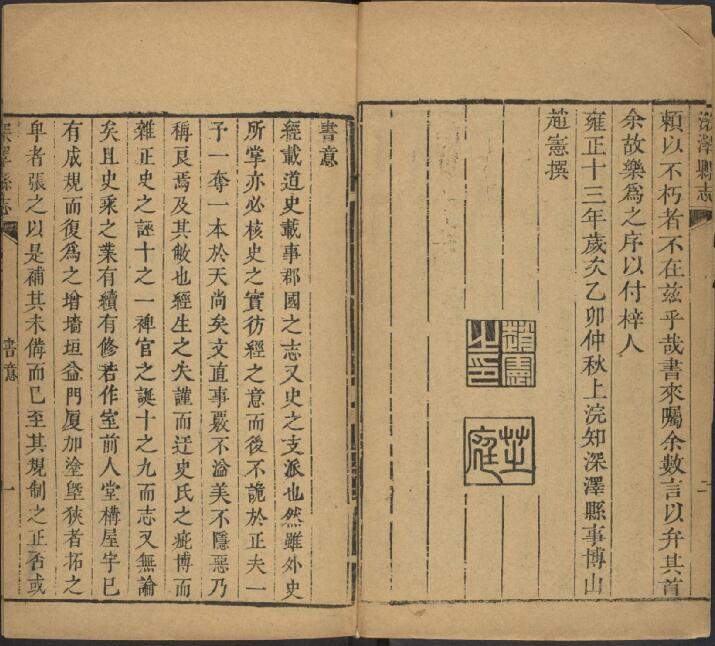 深澤縣志
二
賴以不朽者不在茲乎哉書來囑余數言以弁其首
余故樂為之序以付梓人
雍正十三年歲次乙卯仲秋上浣知深澤縣事博山
趙憲撰
趙憲之印
芷庭
書意
經載道史載事郡國之志又史之支派也然雖外史
所掌亦必核史之實彷經之意而後不詭於正夫一
予一奪一本於天尚矣文直事覈不溢美不隱惡乃
稱良焉及其敝也經生之失謹而迂史氏之疵博而
雜正史之誣十之一稗官之誕十之九而志又無論
矣且史乘之業有續有修若作室前人堂構屋宇已
有成規而復為之增墻垣益門厦加塗墍狹者拓之
卑者張之以是補其未備而已至其規制之正否或
深澤縣志
書意
一